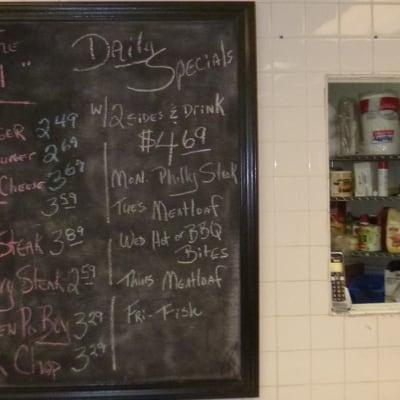 Daily
Specials
W/ 2 Sides & Drink
$4.69
Mon. Philly Steak
Tues Meatloaf
Wed Hot or BBQ
Bites
Thurs Meatloaf
Fri- Fish
2.49
2.69
Cheese 3.69
3.59
Steak 3.89
Steak 2.59
Po Boy 3.29
Chop 3.29